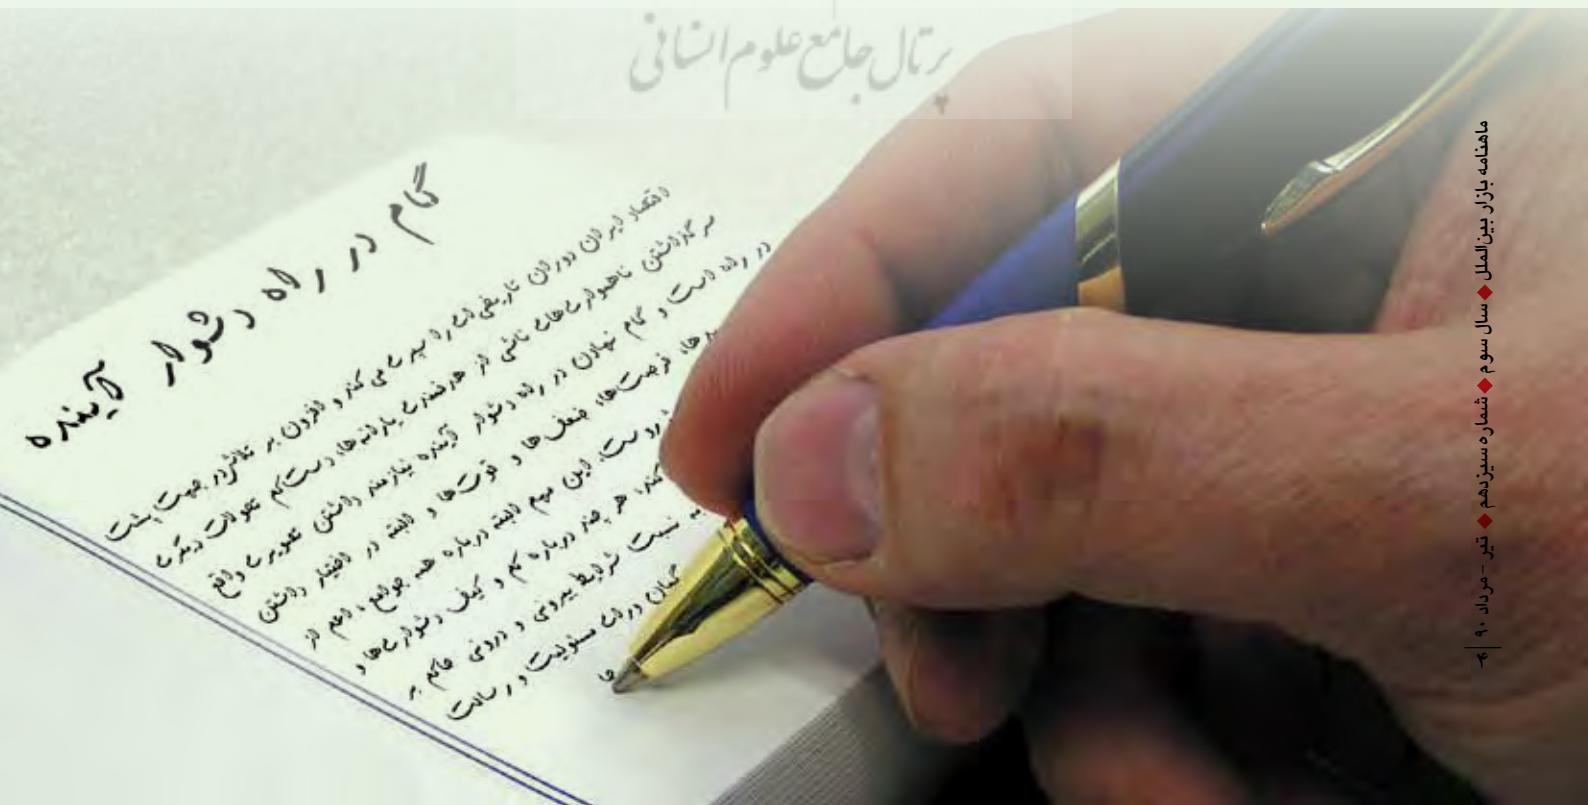 پرتال جامع علوم انسانی
گام در راه دشوار آینده
اقتصاد ایران دوران تاریخی‌ای را سپری می کند و افزون بر تلاش در جهت پشت
سر گذاشتن ناهمواری‌های ناشی از هدفمندی یارانه‌ها، دست‌کم تحولات دیگری
در راه است و گام نهادن در راه دشوار آینده نیازمند داشتن تصویری واقع
ها، فرصت‌ها، ضعف‌ها و قوت‌ها و البته در اختیار داشتن
روست. این مهم البته درباره همه جوامع، اعم از
کند، هر چند درباره کم و کیف دشواری‌ها و
به نسبت شرایط بیرونی و درونی حاکم بر
گمان ورای مسئولیت و رسالت
ها
ماهنامه بازار بین‌الملل ◆ سال سوم ◆ شماره سیزدهم ◆ تیر - مرداد ۹۰ | ۴